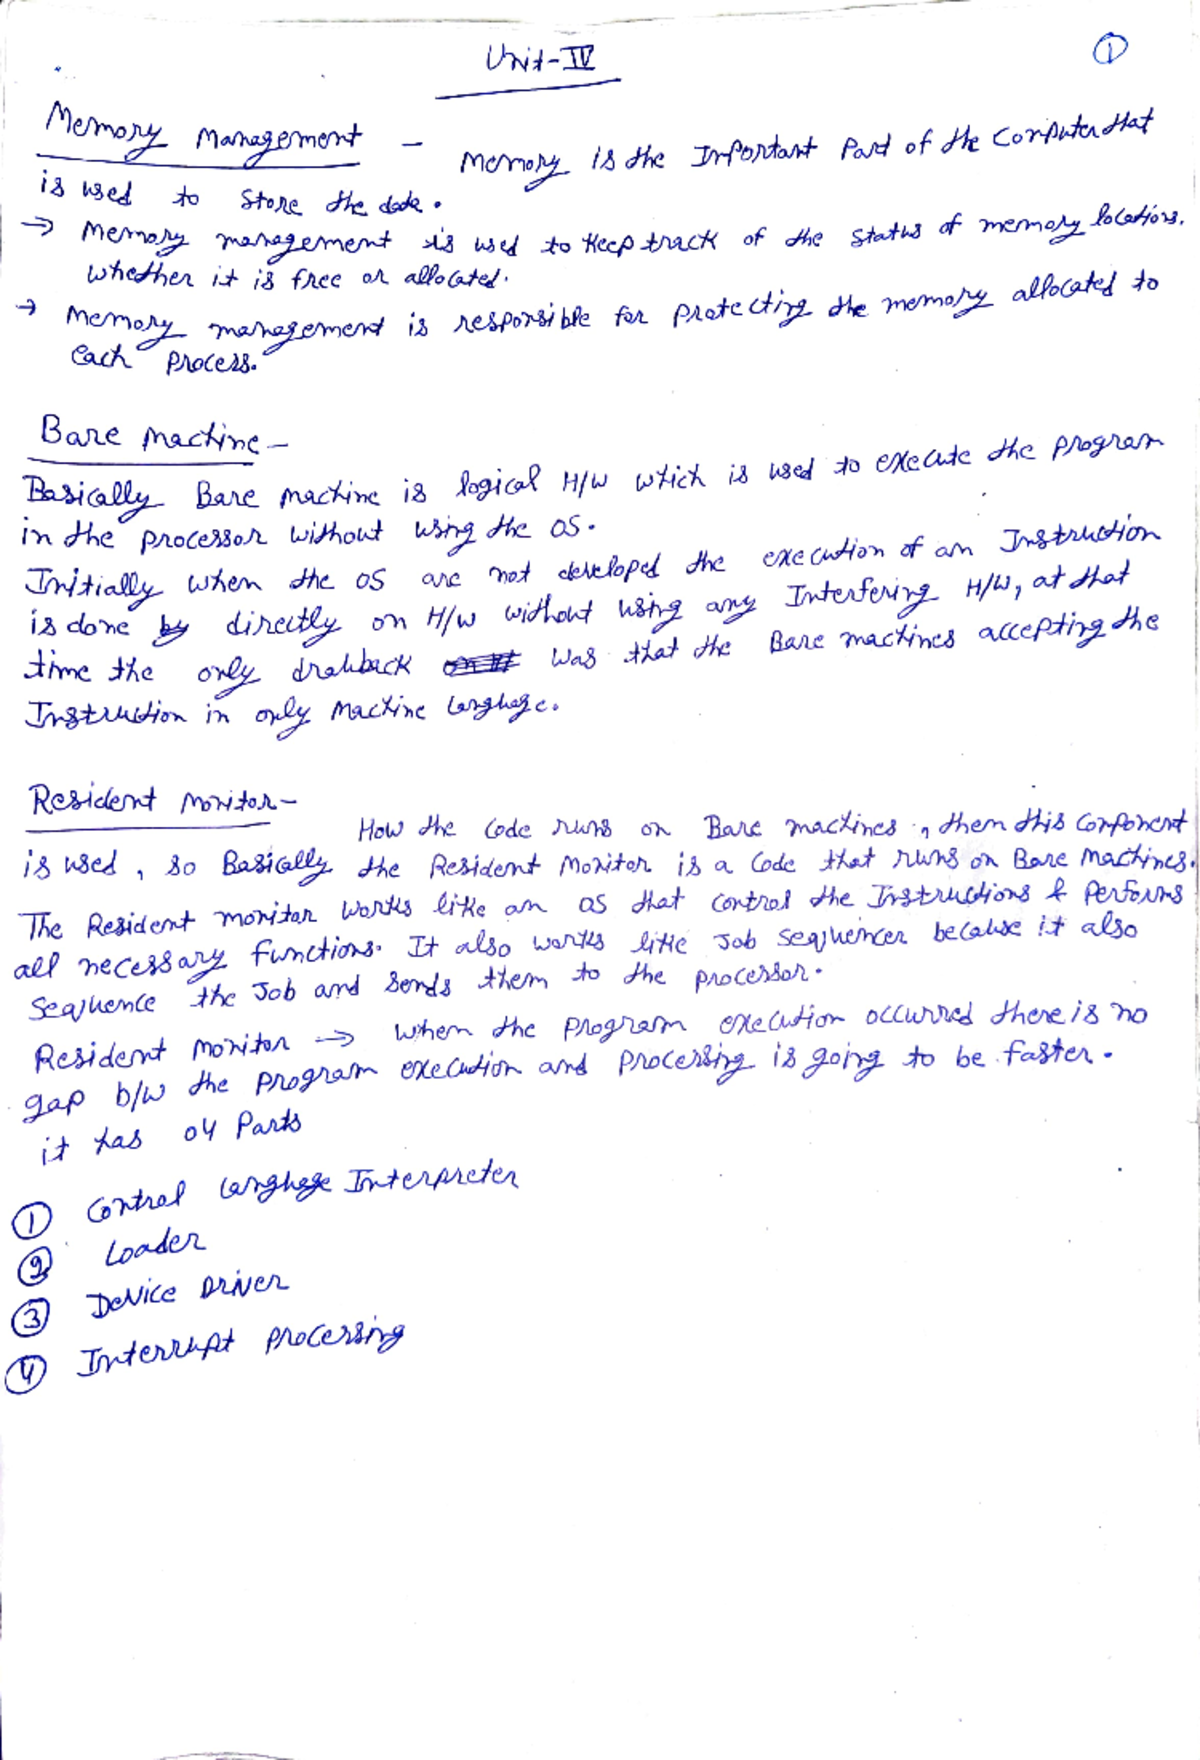 Unit-IV
①
Memory Management - Memory is the Important Part of the Computer that
is used to store the data.
→ Memory management is used to keep track of the status of memory locations.
whether it is free or allocated.
→ Memory management is responsible for protecting the memory allocated to
each process.
Bare Machine-
Basically Bare machine is logical H/W which is used to execute the program
in the processor without using the OS.
Initially when the OS are not developed the execution of an Instruction
is done by directly on H/W without using any Interfering H/W, at that
time the only drawback was that the Bare machines accepting the
Instruction in only Machine language.
Resident Monitor-
How the code runs on Bare machines, then this component
is used, so Basically the Resident Monitor is a code that runs on Bare Machines.
The Resident monitor works like an OS that control the Instructions & Performs
all necessary functions. It also works like Job Sequencer because it also
Sequence the Job and sends them to the processor.
Resident Monitor → when the program execution occurred there is no
gap b/w the program execution and Processing is going to be faster.
it has 04 Parts
① Control language Interpreter
② Loader
③ Device Driver
④ Interrupt processing